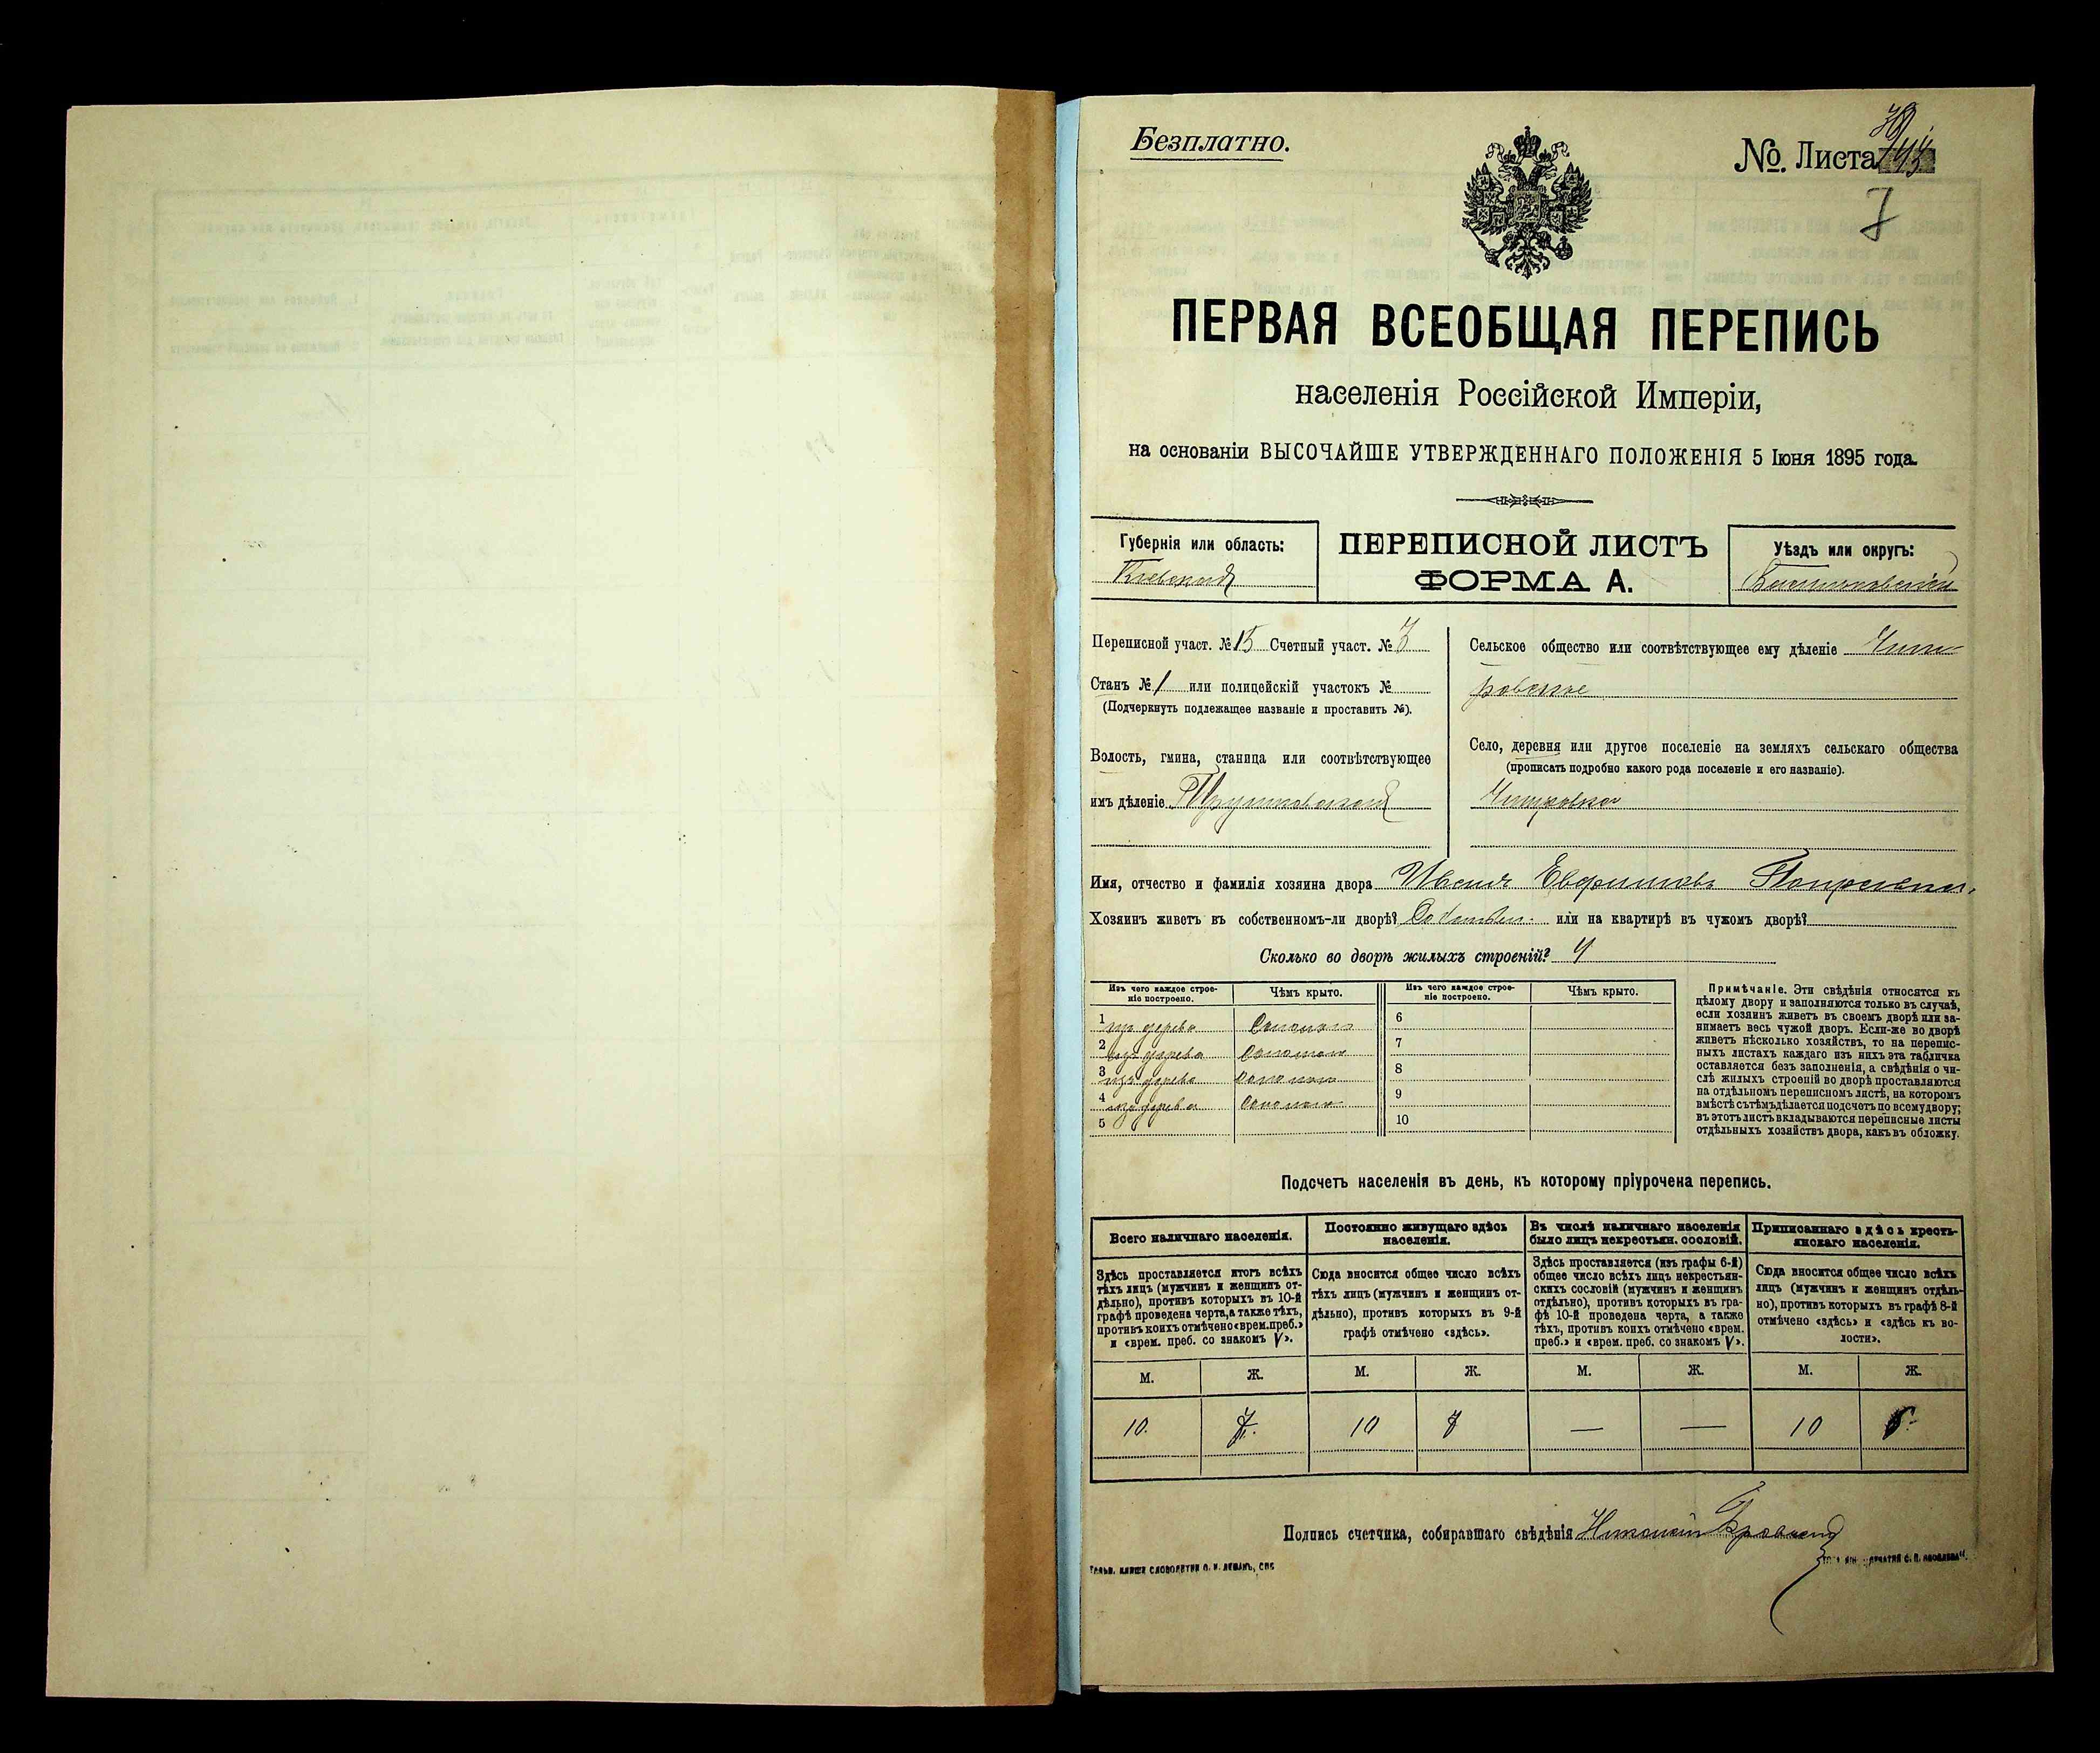 Безплатно.
№ Листа
7
ПЕРВАЯ ВСЕОБЩАЯ ПЕРЕПИСЬ
населенія Россійской Имперіи,
на основаніи ВЫСОЧАЙШЕ УТВЕРЖДЕННАГО ПОЛОЖЕНІЯ 5 Іюня 1895 года.
Губернія или область:
Кіевская
ПЕРЕПИСНОЙ ЛИСТЪ
ФОРМА А.
Уѣздъ или округъ:
Переписной участ. № 15 Счетный участ. № 3
Станъ № 1 или полицейскій участокъ №
(Подчеркнуть подлежащее названіе и проставить №).
Волость, гмина, станица или соотвѣтствующее
имъ дѣленіе
Сельское общество или соотвѣтствующее ему дѣленіе Чупи-
ровское
Село, деревня или другое поселеніе на земляхъ сельскаго общества
(прописать подробно какого рода поселеніе и его названіе).
Имя, отчество и фамилія хозяина двора Иванъ Евфимовъ
Хозяинъ живетъ въ собственномъ-ли дворѣ? Собствен. или на квартирѣ въ чужомъ дворѣ?
Сколько во дворѣ жилыхъ строеній? 4
Изъ чего каждое строе-
ніе построено.
Чѣмъ крыто.
Изъ чего каждое строе-
ніе построено.
Чѣмъ крыто.
1 изъ дерева Соломою 6
2 изъ дерева Соломою 7
3 изъ дерева Соломою 8
4 изъ дерева Соломою 9
5 10
Примѣчаніе. Эти свѣдѣнія относятся къ
цѣлому двору и заполняются только въ случаѣ,
если хозяинъ живетъ въ своемъ дворѣ или за-
нимаетъ весь чужой дворъ. Если-же во дворѣ
живетъ нѣсколько хозяйствъ, то на перепис-
ныхъ листахъ каждаго изъ нихъ эта табличка
оставляется безъ заполненія, а свѣдѣнія о чи-
слѣ жилыхъ строеній во дворѣ проставляются
на отдѣльномъ переписномъ листѣ, на которомъ
вмѣстѣ съ тѣмъ дѣлается подсчетъ по всему двору;
въ этотъ листъ вкладываются переписные листы
отдѣльныхъ хозяйствъ двора, какъ въ обложку.
Подсчетъ населенія въ день, къ которому пріурочена перепись.
Всего наличнаго населенія.
Постоянно живущаго здѣсь
населенія.
Въ числѣ наличнаго населенія
было лицъ некрестьян. сословій.
Приписаннаго здѣсь кресть-
янскаго населенія.
Здѣсь проставляется итогъ всѣхъ
тѣхъ лицъ (мужчинъ и женщинъ от-
дѣльно), противъ которыхъ въ 10-й
графѣ проведена черта, а также тѣхъ,
противъ коихъ отмѣчено «врем. преб.»
и «врем. преб. со знакомъ V».
Сюда вносится общее число всѣхъ
тѣхъ лицъ (мужчинъ и женщинъ от-
дѣльно), противъ которыхъ въ 9-й
графѣ отмѣчено «здѣсь».
Здѣсь проставляется (изъ графы 6-й)
общее число всѣхъ лицъ некрестьян-
скихъ сословій (мужчинъ и женщинъ
отдѣльно), противъ которыхъ въ гра-
фѣ 10-й проведена черта, а также
тѣхъ, противъ коихъ отмѣчено «врем.
преб.» и «врем. преб. со знакомъ V».
Сюда вносится общее число всѣхъ
лицъ (мужчинъ и женщинъ отдѣль-
но), противъ которыхъ въ графѣ 8-й
отмѣчено «здѣсь» и «здѣсь къ во-
лости».
М. Ж. М. Ж. М. Ж. М. Ж.
10. 7. 10 7 — — 10
Подпись счетчика, собиравшаго свѣдѣнія Николай